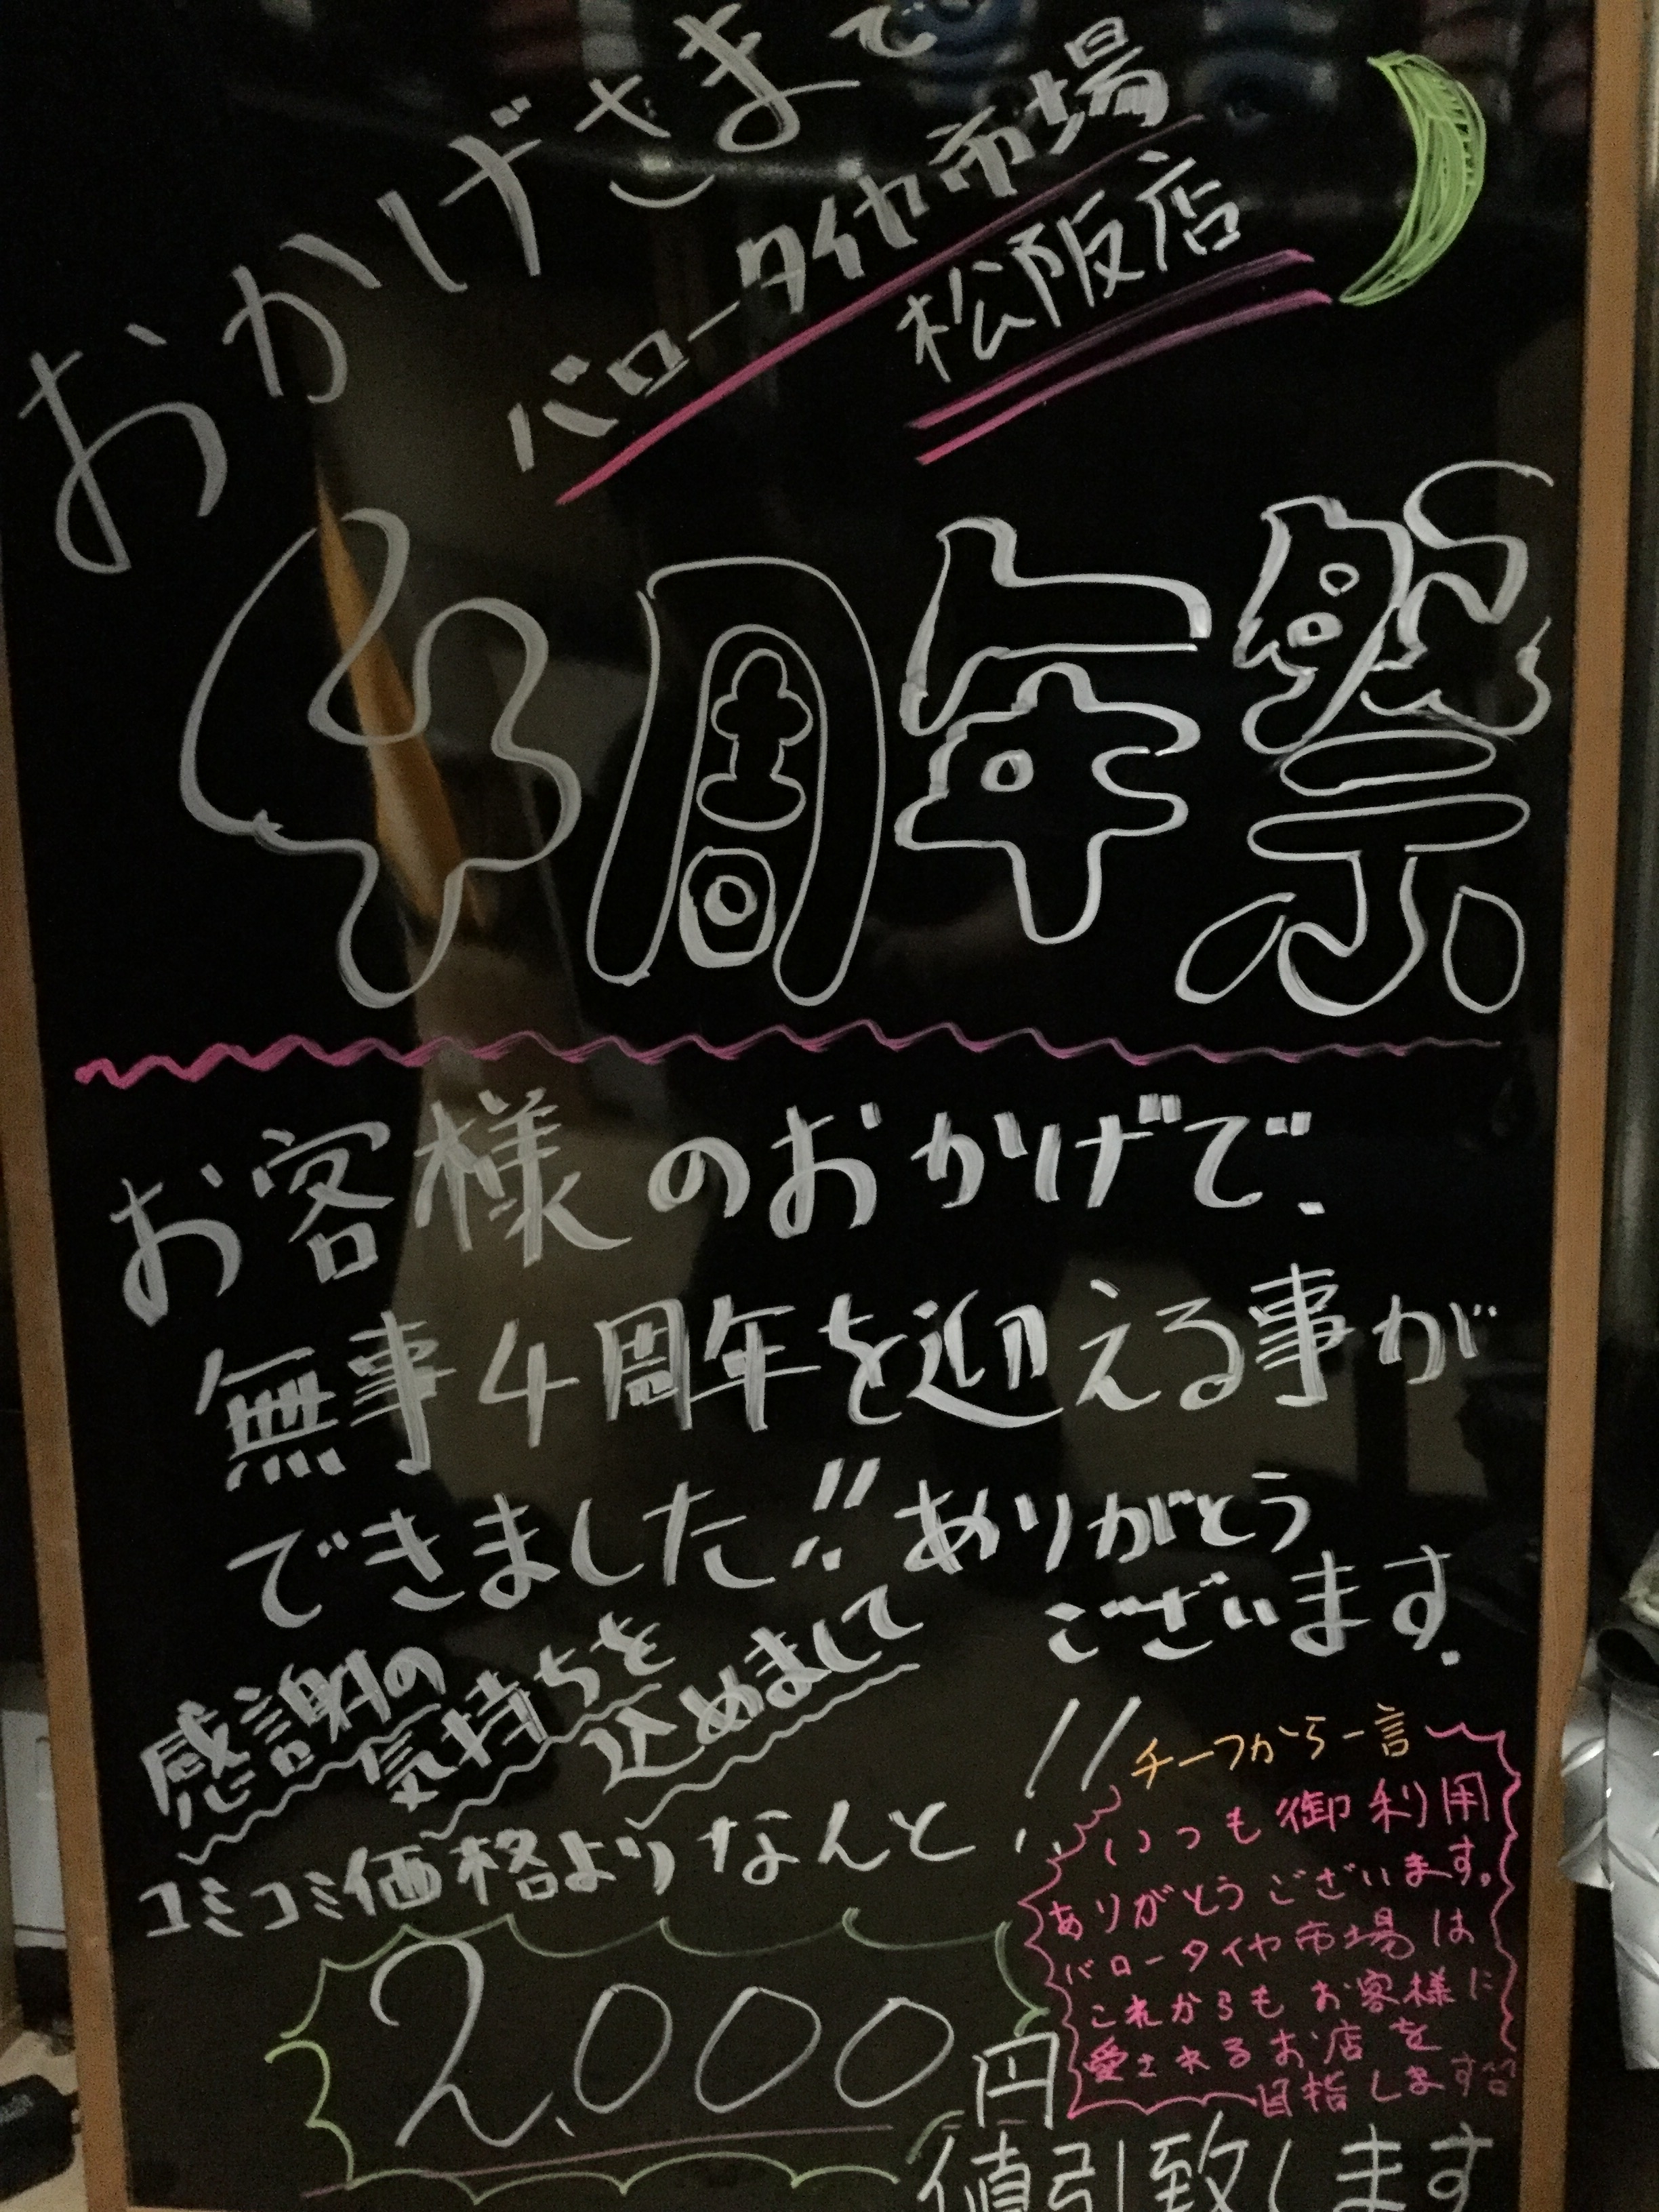 おかげさまで
バロータイヤ市場
松阪店
4周年祭
お客様のおかげで、
無事4周年を迎える事が
できました!!ありがとう
ございます.
感謝の
気持ちを
込めまして
コミコミ価格よりなんと!!
2,000円
値引致します
チーフから一言
いつも御利用
ありがとうございます。
バロータイヤ市場は
これからもお客様に
愛されるお店を
目指します